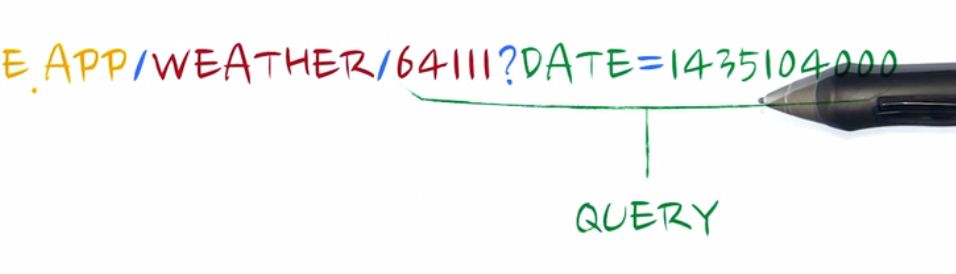 E.APP/WEATHER/64111?DATE=1435104000
QUERY